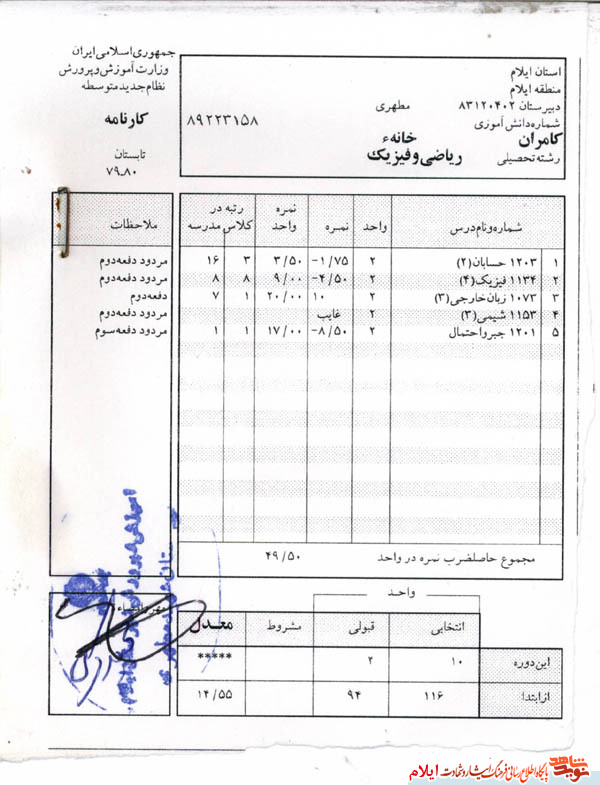 جمهوری اسلامی ایران
وزارت آموزش و پرورش
نظام جدید متوسطه
کارنامه
تابستان
۷۹ـ۸۰
استان ایلام
منطقه ایلام
دبیرستان ۸۳۱۲۰۴۰۲ مطهری
شماره دانش آموزی ۸۹۲۲۳۱۵۸
کامران خانهء
رشته تحصیلی ریاضی و فیزیک
شماره و نام درس واحد نمره نمره واحد رتبه در کلاس مدرسه ملاحظات
۱ ۱۲۰۳ حسابان (۲) ۲ ۱/۷۵− ۳/۵۰ ۳ ۱۶ مردود دفعه دوم
۲ ۱۱۳۴ فیزیک (۴) ۲ ۴/۵۰− ۹/۰۰ ۸ ۸ مردود دفعه دوم
۳ ۱۰۷۳ زبان خارجی (۳) ۲ ۱۰ ۲۰/۰۰ ۱ ۷ دفعه دوم
۴ ۱۱۵۳ شیمی (۳) ۲ غایب مردود دفعه دوم
۵ ۱۲۰۱ جبر و احتمال ۲ ۸/۵۰− ۱۷/۰۰ ۱ ۱ مردود دفعه سوم
مجموع حاصلضرب نمره در واحد ۴۹/۵۰
واحد
انتخابی قبولی مشروط معدل
این دوره ۱۰ ۲ *****
از ابتدا ۱۱۶ ۹۴ ۱۴/۵۵
مهر و امضاء
نوید شاهد
پایگاه اطلاع رسانی فرهنگ ایثار و شهادت ایلام